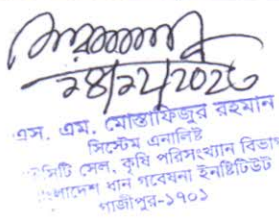 ২৪/১২/২০২৩
এস. এম. মোস্তাফিজুর রহমান
সিস্টেম এনালিষ্ট
সিটি সেল, কৃষি পরিসংখ্যান বিভাগ
বাংলাদেশ ধান গবেষনা ইনষ্টিটিউট
গাজীপুর-১৭০১